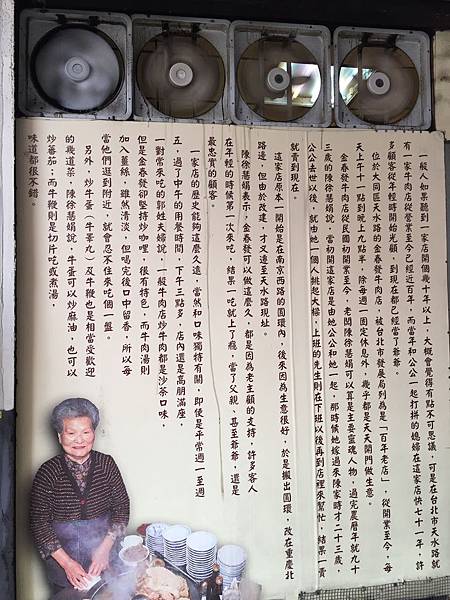 一般人如果聽到一家店開個幾十年以上，大概會覺得有點不可思議，可是在台北市天水路就
有一家牛肉店從營業至今已經近百年，而當年和公公一起打拼的媳婦在這家店快七十一年，許
多顧客從年輕時開始光顧，到現在都已經當了爺爺。
位於大同區天水路的金春發牛肉店，被台北市發展局列為是「百年老店」，從開業至今，每
天上午十一點到晚上九點半，除每週一固定休息外，幾乎都是天天開門做生意。
金春發牛肉店從民國初開業至今，老闆陳徐慧娟可以算是主要靈魂人物，過完農曆年就九十
三歲的陳徐慧娟說，當初開這家店是由她公公和她一起，那時候她嫁過來陳家時才二十三歲，
公公去世以後，就由她一個人挑起大樑，上班的先生則在下班以後再到店裡來幫忙，結果一賣
就賣到現在。
這家店原本一開始是在南京西路的圓環內，後來因為生意很好，於是搬出圓環，改在重慶北
路邊，但由於改建，才又遷至天水路現址。
陳徐慧娟表示，金春發可以做這麼久，都是因為老主顧的支持，許多客人
在年輕的時候第一次來吃，結果一吃就上了癮，當了父親、甚至爺爺，還是
最忠實的顧客。
一家店的歷史能夠這麼久遠，當然和口味獨特有關，即使是平常週一至週
五，過了中午的用餐時間，下午三點多，店內還是高朋滿座。
一對常來吃的郭姓夫婦說，一般牛肉店炒牛肉都是沙茶口味，
但是金春發卻堅持炒咖哩，很有特色，而牛肉湯則
加入薑絲，雖然清淡，但喝完後口中留香，所以每
當他們逛到附近，就會忍不住來吃個一盤。
另外，炒牛蛋（牛睪丸）及牛鞭也是相當受歡迎
的幾道菜，陳徐慧娟說，牛蛋可以炒麻油，也可以
炒蕃茄；而牛鞭則是切片吃或煮湯，
味道都很不錯。